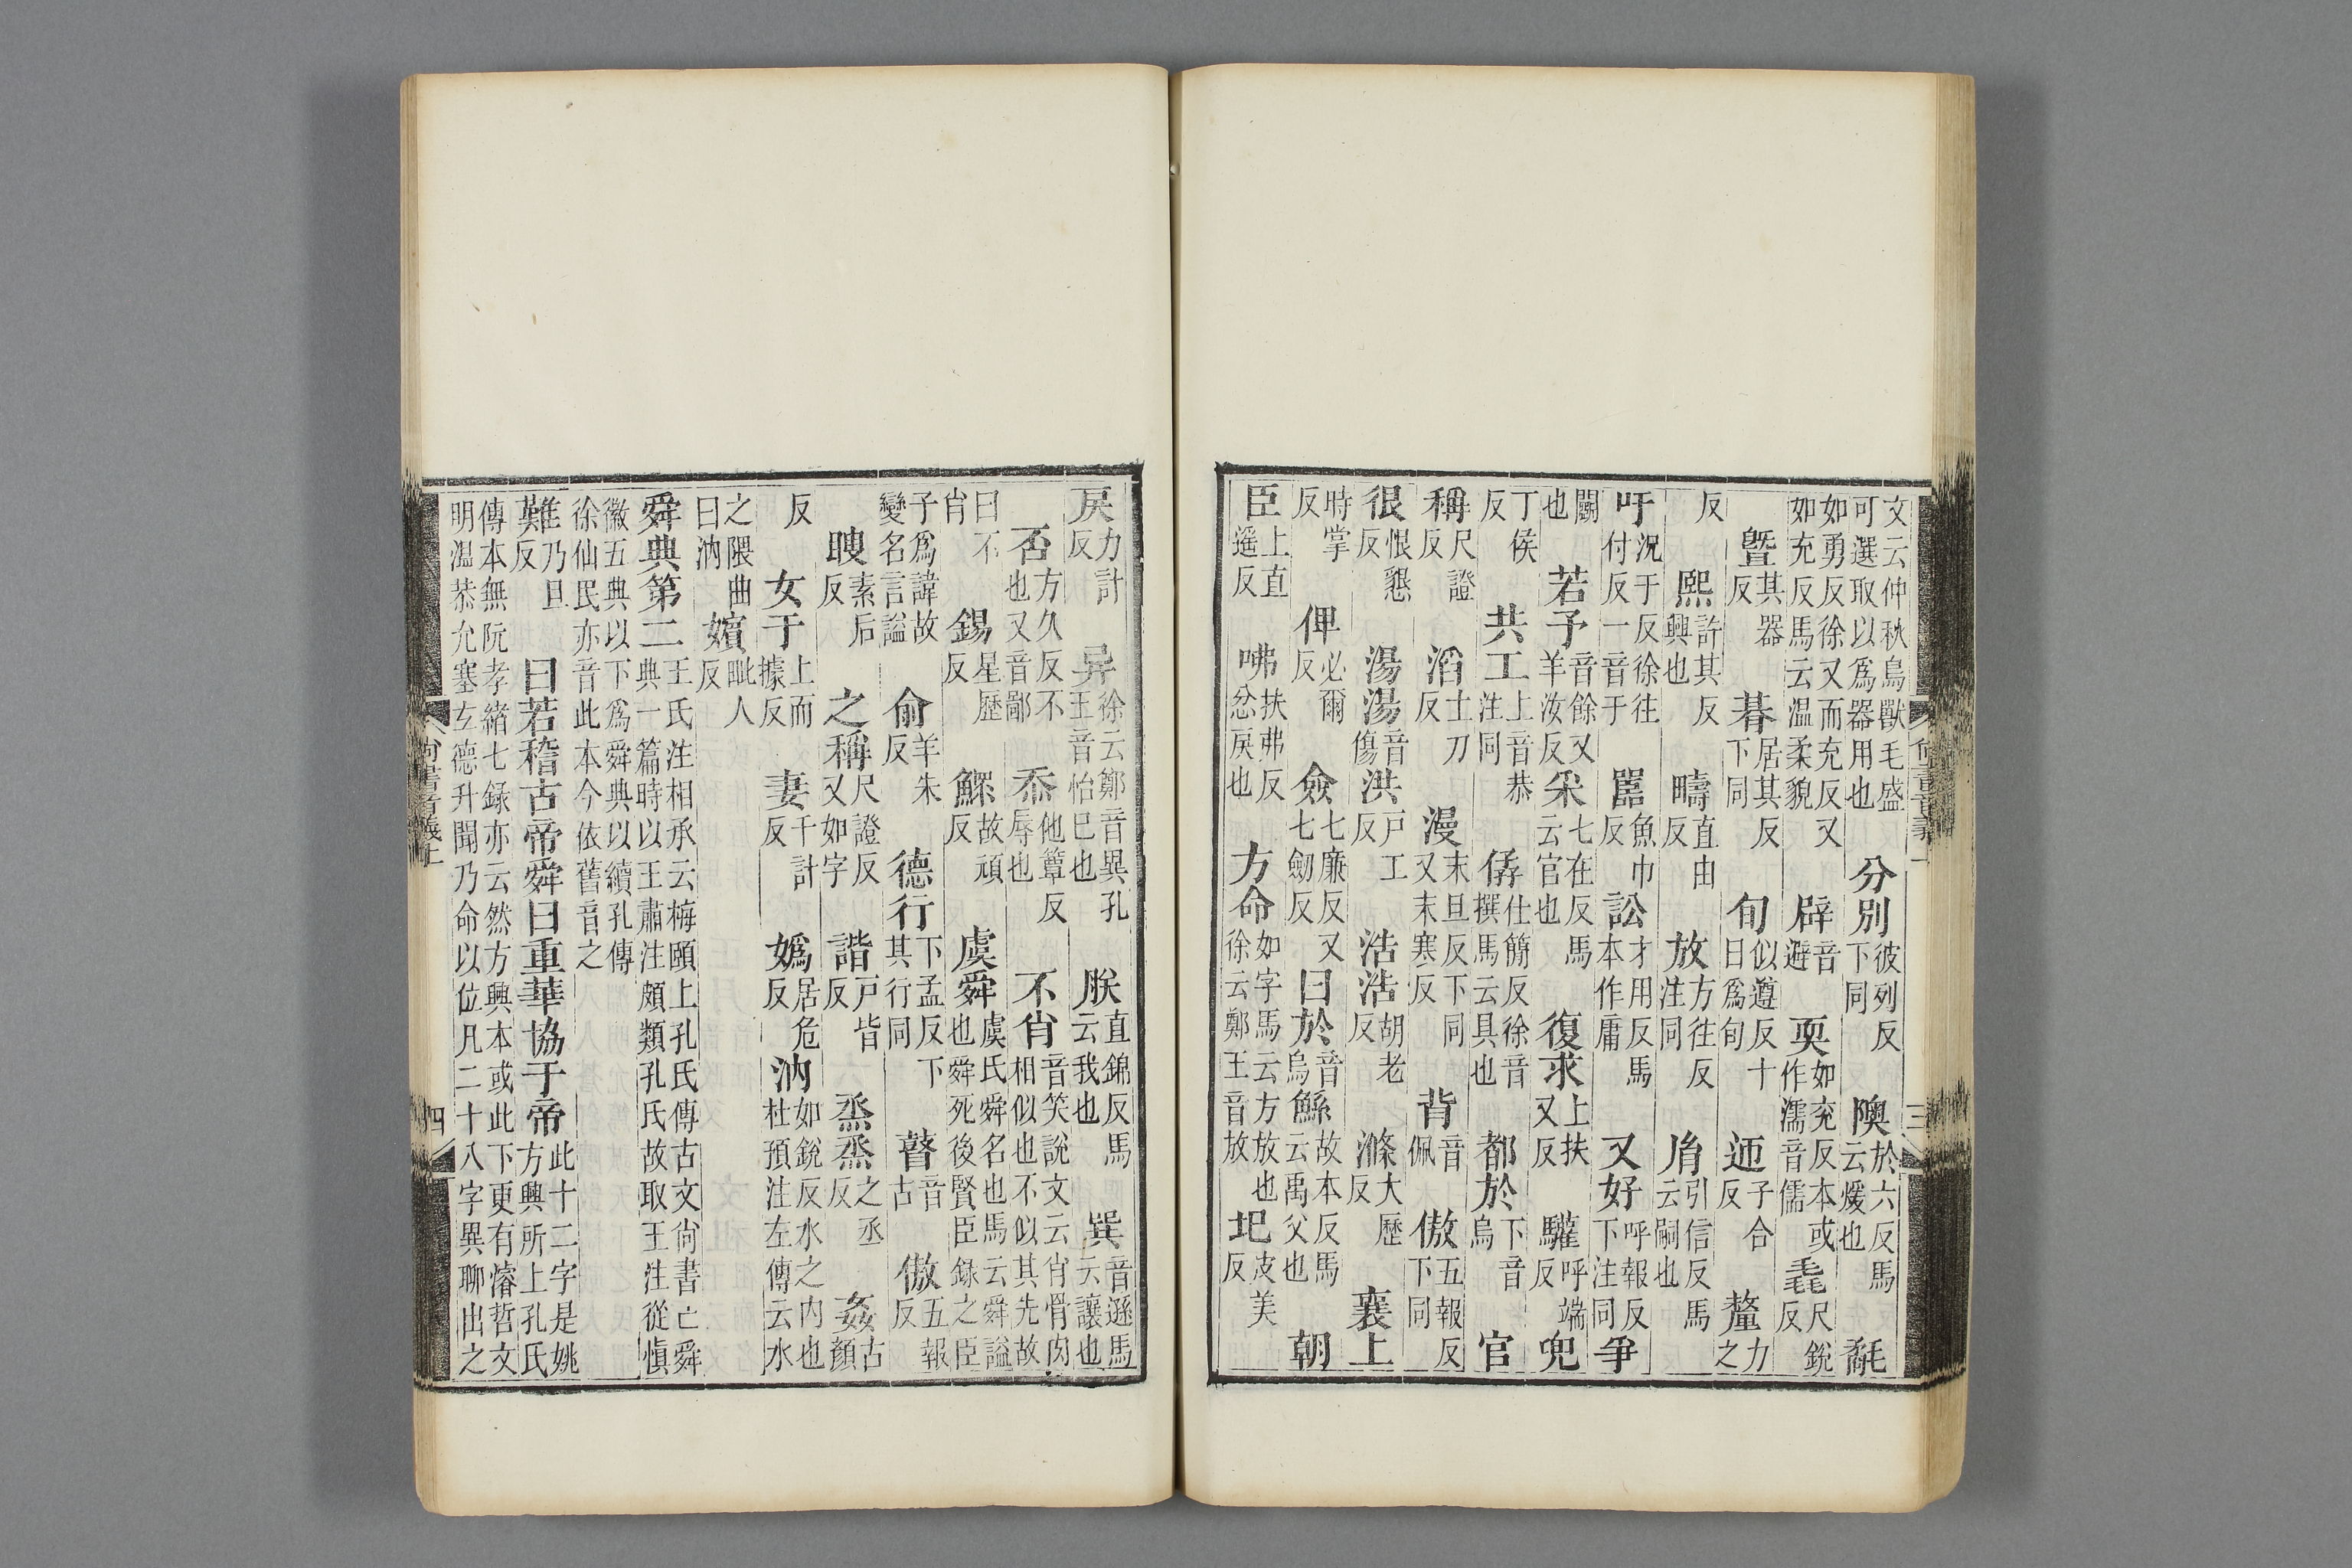 文云仲秋鳥獸毛盛可選取以爲器用也分別彼列反下同隩於六反馬云煖也氄
如勇反徐又而充反又如充反馬云温柔貌辟音避耎如兖反本或作濡音儒毳尺銳反
曁其器反朞居其反下同旬似遵反十日爲旬迊子合反釐力之
反熙許其反興也疇直由反放方往反注同胤引信反馬云嗣也
吁況于反徐往付反一音于嚚魚巾反訟才用反馬本作庸又好呼報反下注同爭
鬭也若予音餘又羊汝反采七在反馬云官也復求上扶又反驩呼端反兜
丁侯反共工上音恭注同僝仕簡反徐音撰馬云具也都於下音烏官
稱尺證反滔土刀反漫末旦反下同又末寒反背音佩傲五報反下同
很恨懇反湯湯音傷洪戶工反浩浩胡老反滌大歷反襄上
時掌反俾必爾反僉七廉反又七劒反曰於音烏鯀故本反馬云禹父也朝
臣上直遥反咈扶弗反忿戾也方命如字馬云方放也徐云鄭王音放圮皮美反
戾力計反异徐云鄭音異孔王音怡巳也朕直錦反馬云我也巽音遜馬云讓也
否方久反不也又音鄙忝他簟反辱也不肖音笑說文云肖骨肉相似也不似其先故
曰不肖錫星歷反鰥故頑反虞舜虞氏舜名也馬云舜謚也舜死後賢臣錄之臣
子爲諱故變名言謚俞羊朱反德行下孟反下其行同瞽音古傲五報反
瞍素后反之稱尺證反又如字諧戶皆反烝烝之丞反姦古顏
反女于上而據反妻千計反嬀居危反汭如銳反水之内也杜預注左傳云水
之隈曲曰汭嬪毗人反
舜典第二王氏注相承云梅頤上孔氏傳古文尚書亡舜典一篇時以王肅注頗類孔氏故取王注從慎
徽五典以下爲舜典以續孔傳徐仙民亦音此本今依舊音之
難乃旦反曰若稽古帝舜曰重華協于帝此十二字是姚方興所上孔氏
傳本無阮孝緒七錄亦云然方興本或此下更有濬哲文明温恭允塞玄德升聞乃命以位凡二十八字異聊出之
尚書音義上
四